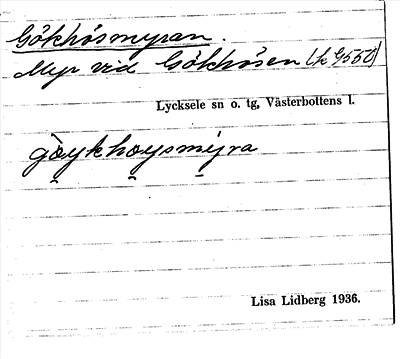 Gökhösmyran.
Myr vid Gökhösen (k 9550)
Lycksele sn o. tg, Västerbottens l.
göykhoysmyra
Lisa Lidberg 1936.